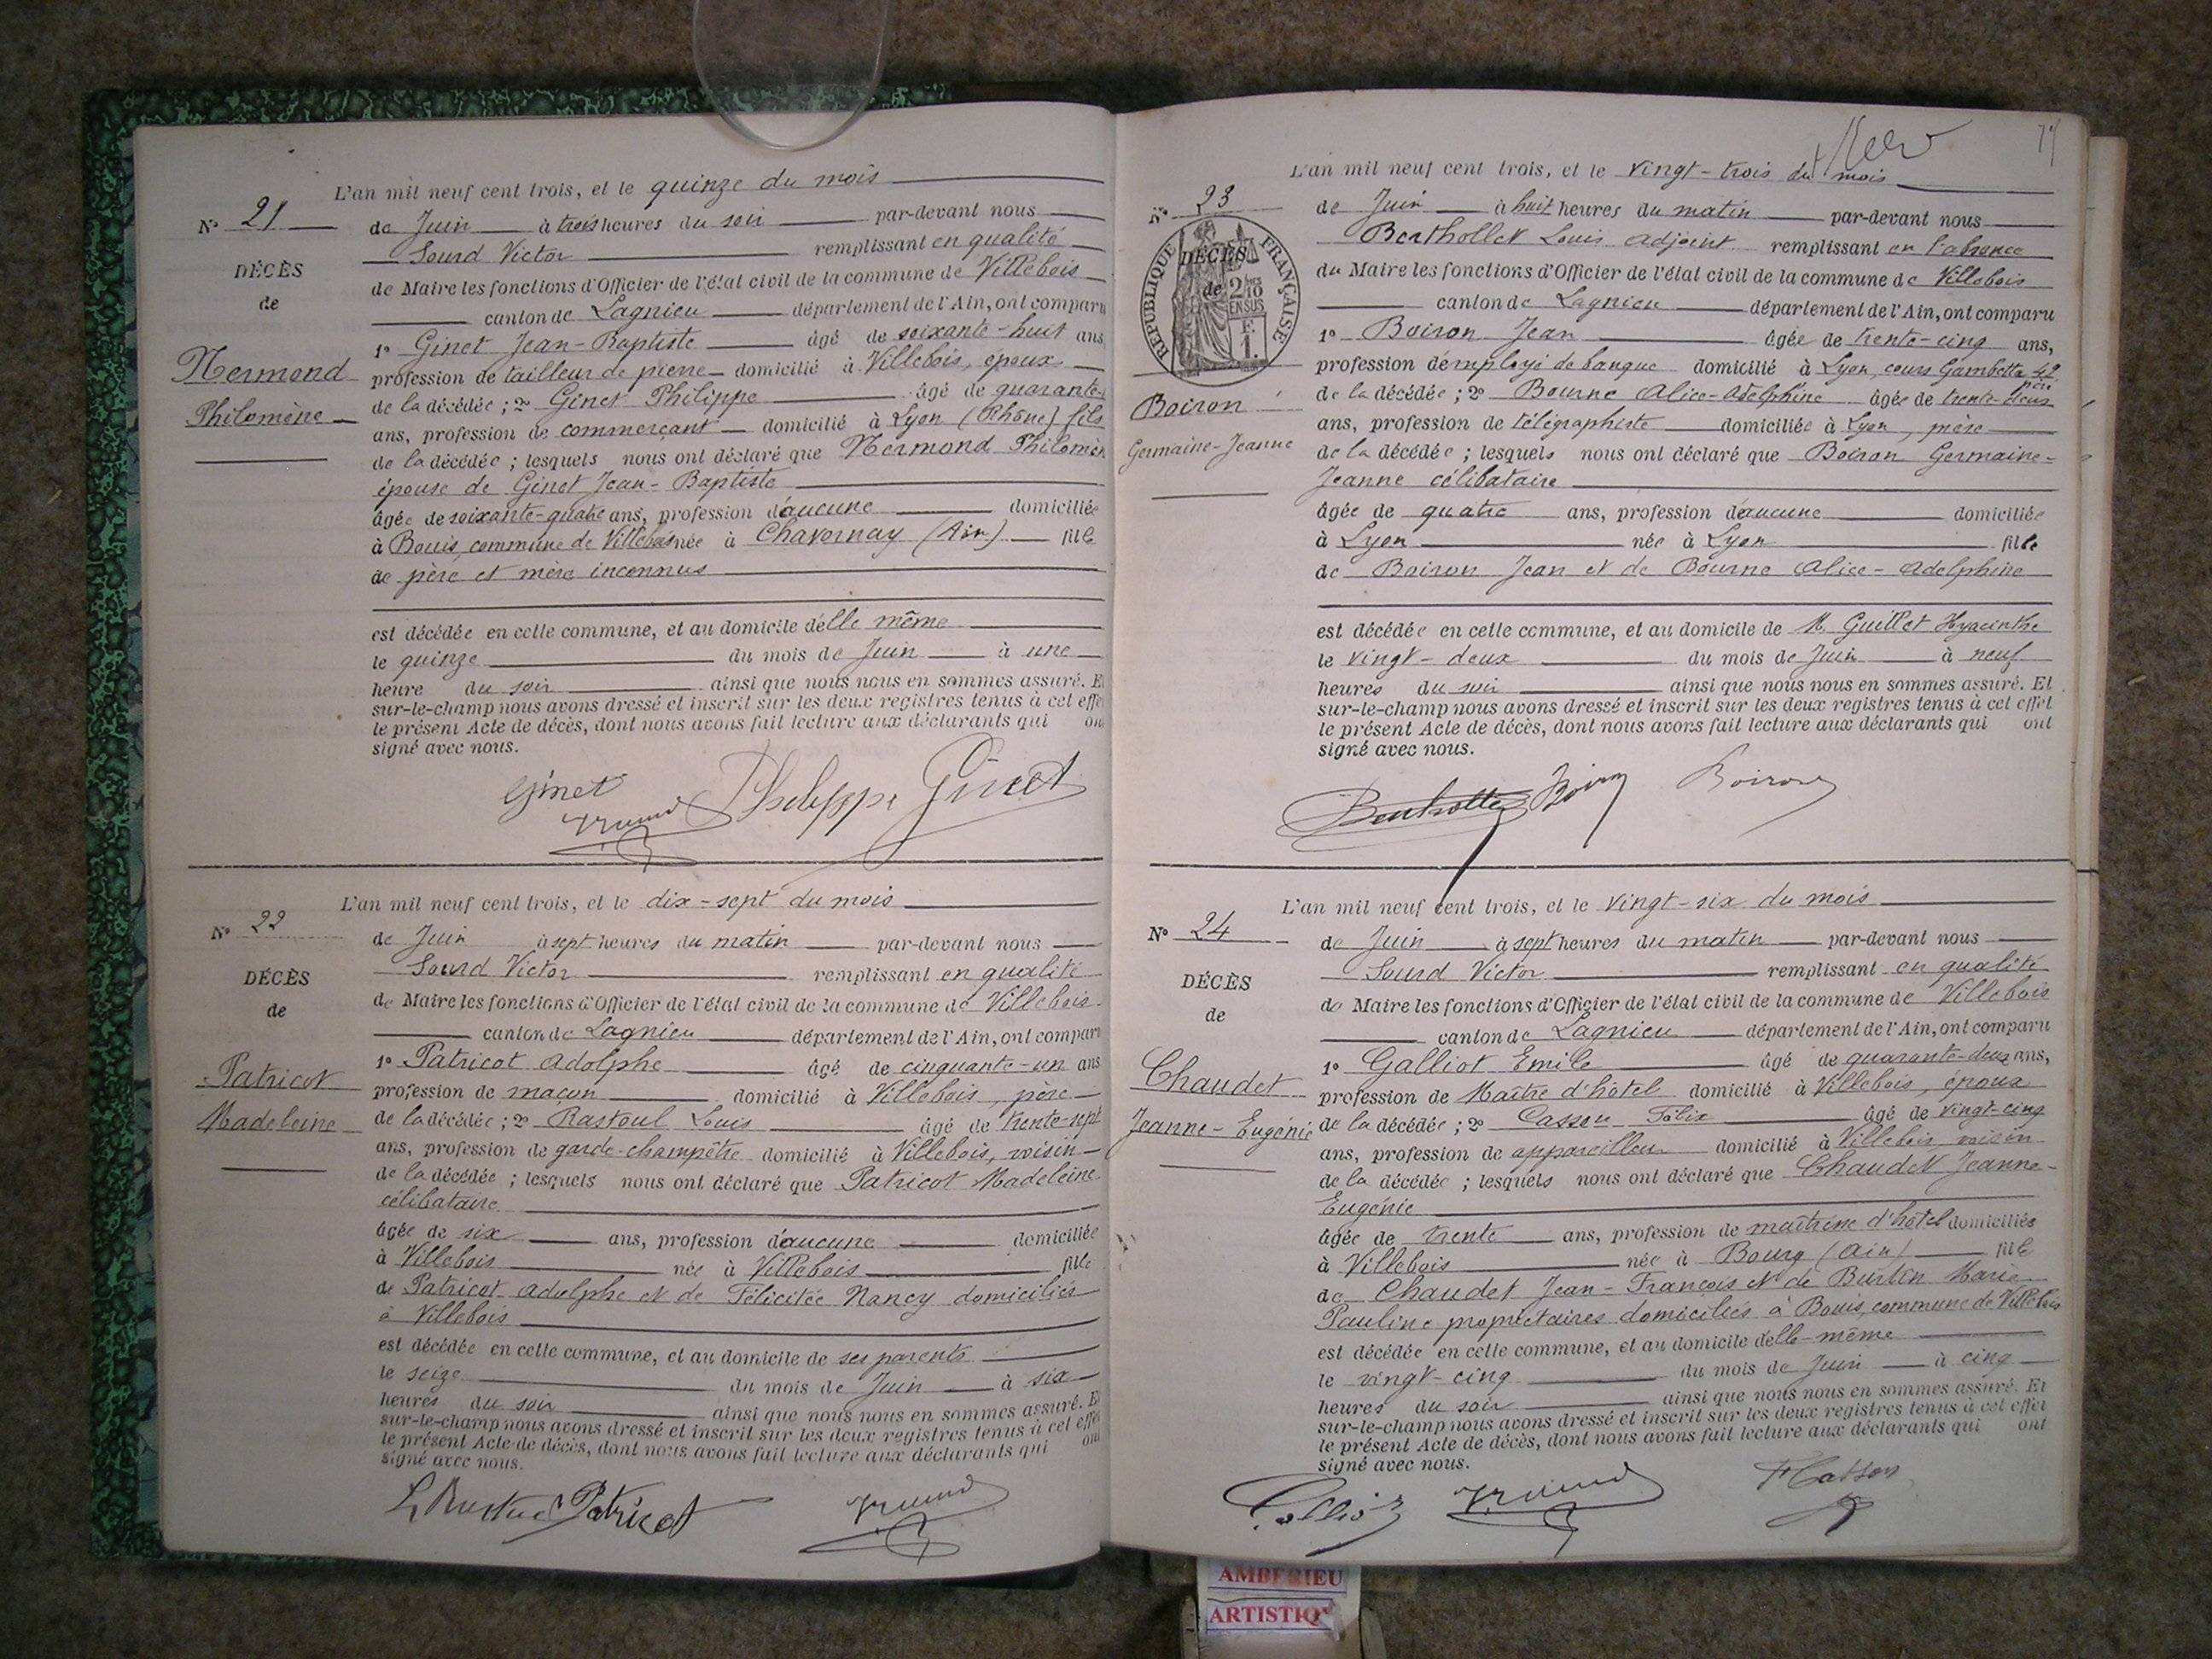 L'an mil neuf cent trois, et le quinze du mois
N° 21
de Juin à trois heures du soir par-devant nous
Sourd Victor remplissant en qualité
DÉCÈS
de Maire les fonctions d'Officier de l'état civil de la commune de Villebois
de
canton de Lagnieu département de l'Ain, ont comparu
1° Ginet Jean-Baptiste âgé de soixante-huit ans
Mermond
profession de tailleur de pierre domicilié à Villebois, époux
de la décédée ; 2° Ginet Philippe âgé de quarante
Philomène
ans, profession de commerçant domicilié à Lyon (Rhône) fils
de la décédée ; lesquels nous ont déclaré que Mermond Philomèn
épouse de Ginet Jean-Baptiste
âgée de soixante-quatre ans, profession d'aucune domiciliée
à Bouis, commune de Villebois née à Chavornay (Ain) fille
de père et mère inconnus
est décédée en cette commune, et au domicile d'elle même
le quinze du mois de Juin à une
heure du soir ainsi que nous nous en sommes assuré. Et
sur-le-champ nous avons dressé et inscrit sur les deux registres tenus à cet effet
le présent Acte de décès, dont nous avons fait lecture aux déclarants qui ont
signé avec nous.
Ginet Philippe Ginet
L'an mil neuf cent trois, et le dix-sept du mois
N° 22
de Juin à sept heures du matin par-devant nous
Sourd Victor remplissant en qualité
DÉCÈS
de Maire les fonctions d'Officier de l'état civil de la commune de Villebois
de
canton de Lagnieu département de l'Ain, ont comparu
1° Patricot Adolphe âgé de cinquante-un ans
Patricot
profession de maçon domicilié à Villebois, père
Madeleine
de la décédée ; 2° Rastoul Louis âgé de trente-sept
ans, profession de garde-champêtre domicilié à Villebois, voisin
de la décédée ; lesquels nous ont déclaré que Patricot Madeleine
célibataire
âgée de six ans, profession d'aucune domiciliée
à Villebois née à Villebois fille
de Patricot Adolphe et de Félicitée Nancy domiciliés
à Villebois
est décédée en cette commune, et au domicile de ses parents
le seize du mois de Juin à six
heures du soir ainsi que nous nous en sommes assuré. Et
sur-le-champ nous avons dressé et inscrit sur les deux registres tenus à cet effet
le présent Acte de décès, dont nous avons fait lecture aux déclarants qui ont
signé avec nous.
Patricot
L'an mil neuf cent trois, et le vingt-trois du mois
N° 23
de Juin à huit heures du matin par-devant nous
Berthollet Louis adjoint remplissant en l'absence
RÉPUBLIQUE FRANÇAISE
DÉCÈS
de
2/10
EN SUS
F.
1.
du Maire les fonctions d'Officier de l'état civil de la commune de Villebois
canton de Lagnieu département de l'Ain, ont comparu
1° Boiron Jean âgée de trente-cinq ans,
profession d'employé de banque domicilié à Lyon, cours Gambetta 42
père
Boiron
de la décédée ; 2° Bourne Alice-Adelphine âgée de trente-deux
ans, profession de télégraphiste domiciliée à Lyon, mère
Germaine-Jeanne
de la décédée ; lesquels nous ont déclaré que Boiron Germaine-
Jeanne célibataire
âgée de quatre ans, profession d'aucune domiciliée
à Lyon née à Lyon fille
de Boiron Jean et de Bourne Alice-Adelphine
est décédée en cette commune, et au domicile de M. Guillet Hyacinthe
le vingt-deux du mois de Juin à neuf
heures du soir ainsi que nous nous en sommes assuré. Et
sur-le-champ nous avons dressé et inscrit sur les deux registres tenus à cet effet
le présent Acte de décès, dont nous avons fait lecture aux déclarants qui ont
signé avec nous.
Boiron
L'an mil neuf cent trois, et le vingt-six du mois
N° 24
de Juin à sept heures du matin par-devant nous
Sourd Victor remplissant en qualité
DÉCÈS
de Maire les fonctions d'Officier de l'état civil de la commune de Villebois
de
canton de Lagnieu département de l'Ain, ont comparu
1° Galliot Emile âgé de quarante-deux ans,
Chaudet
profession de Maître d'hôtel domicilié à Villebois, époux
Jeanne-Eugénie
de la décédée ; 2° Casson Félix âgé de vingt-cinq
ans, profession de appareilleur domicilié à Villebois, voisin
de la décédée ; lesquels nous ont déclaré que Chaudet Jeanne-
Eugénie
âgée de trente ans, profession de maîtresse d'hôtel domiciliée
à Villebois née à Bourg (Ain) fille
de Chaudet Jean-François et de Burtin Marie
Pauline propriétaires domiciliés à Bouis, commune de Villebois
est décédée en cette commune, et au domicile d'elle-même
le vingt-cinq du mois de Juin à cinq
heures du soir ainsi que nous nous en sommes assuré. Et
sur-le-champ nous avons dressé et inscrit sur les deux registres tenus à cet effet
le présent Acte de décès, dont nous avons fait lecture aux déclarants qui ont
signé avec nous.
Galliot F Casson
AMBERIEU
ARTISTIQ